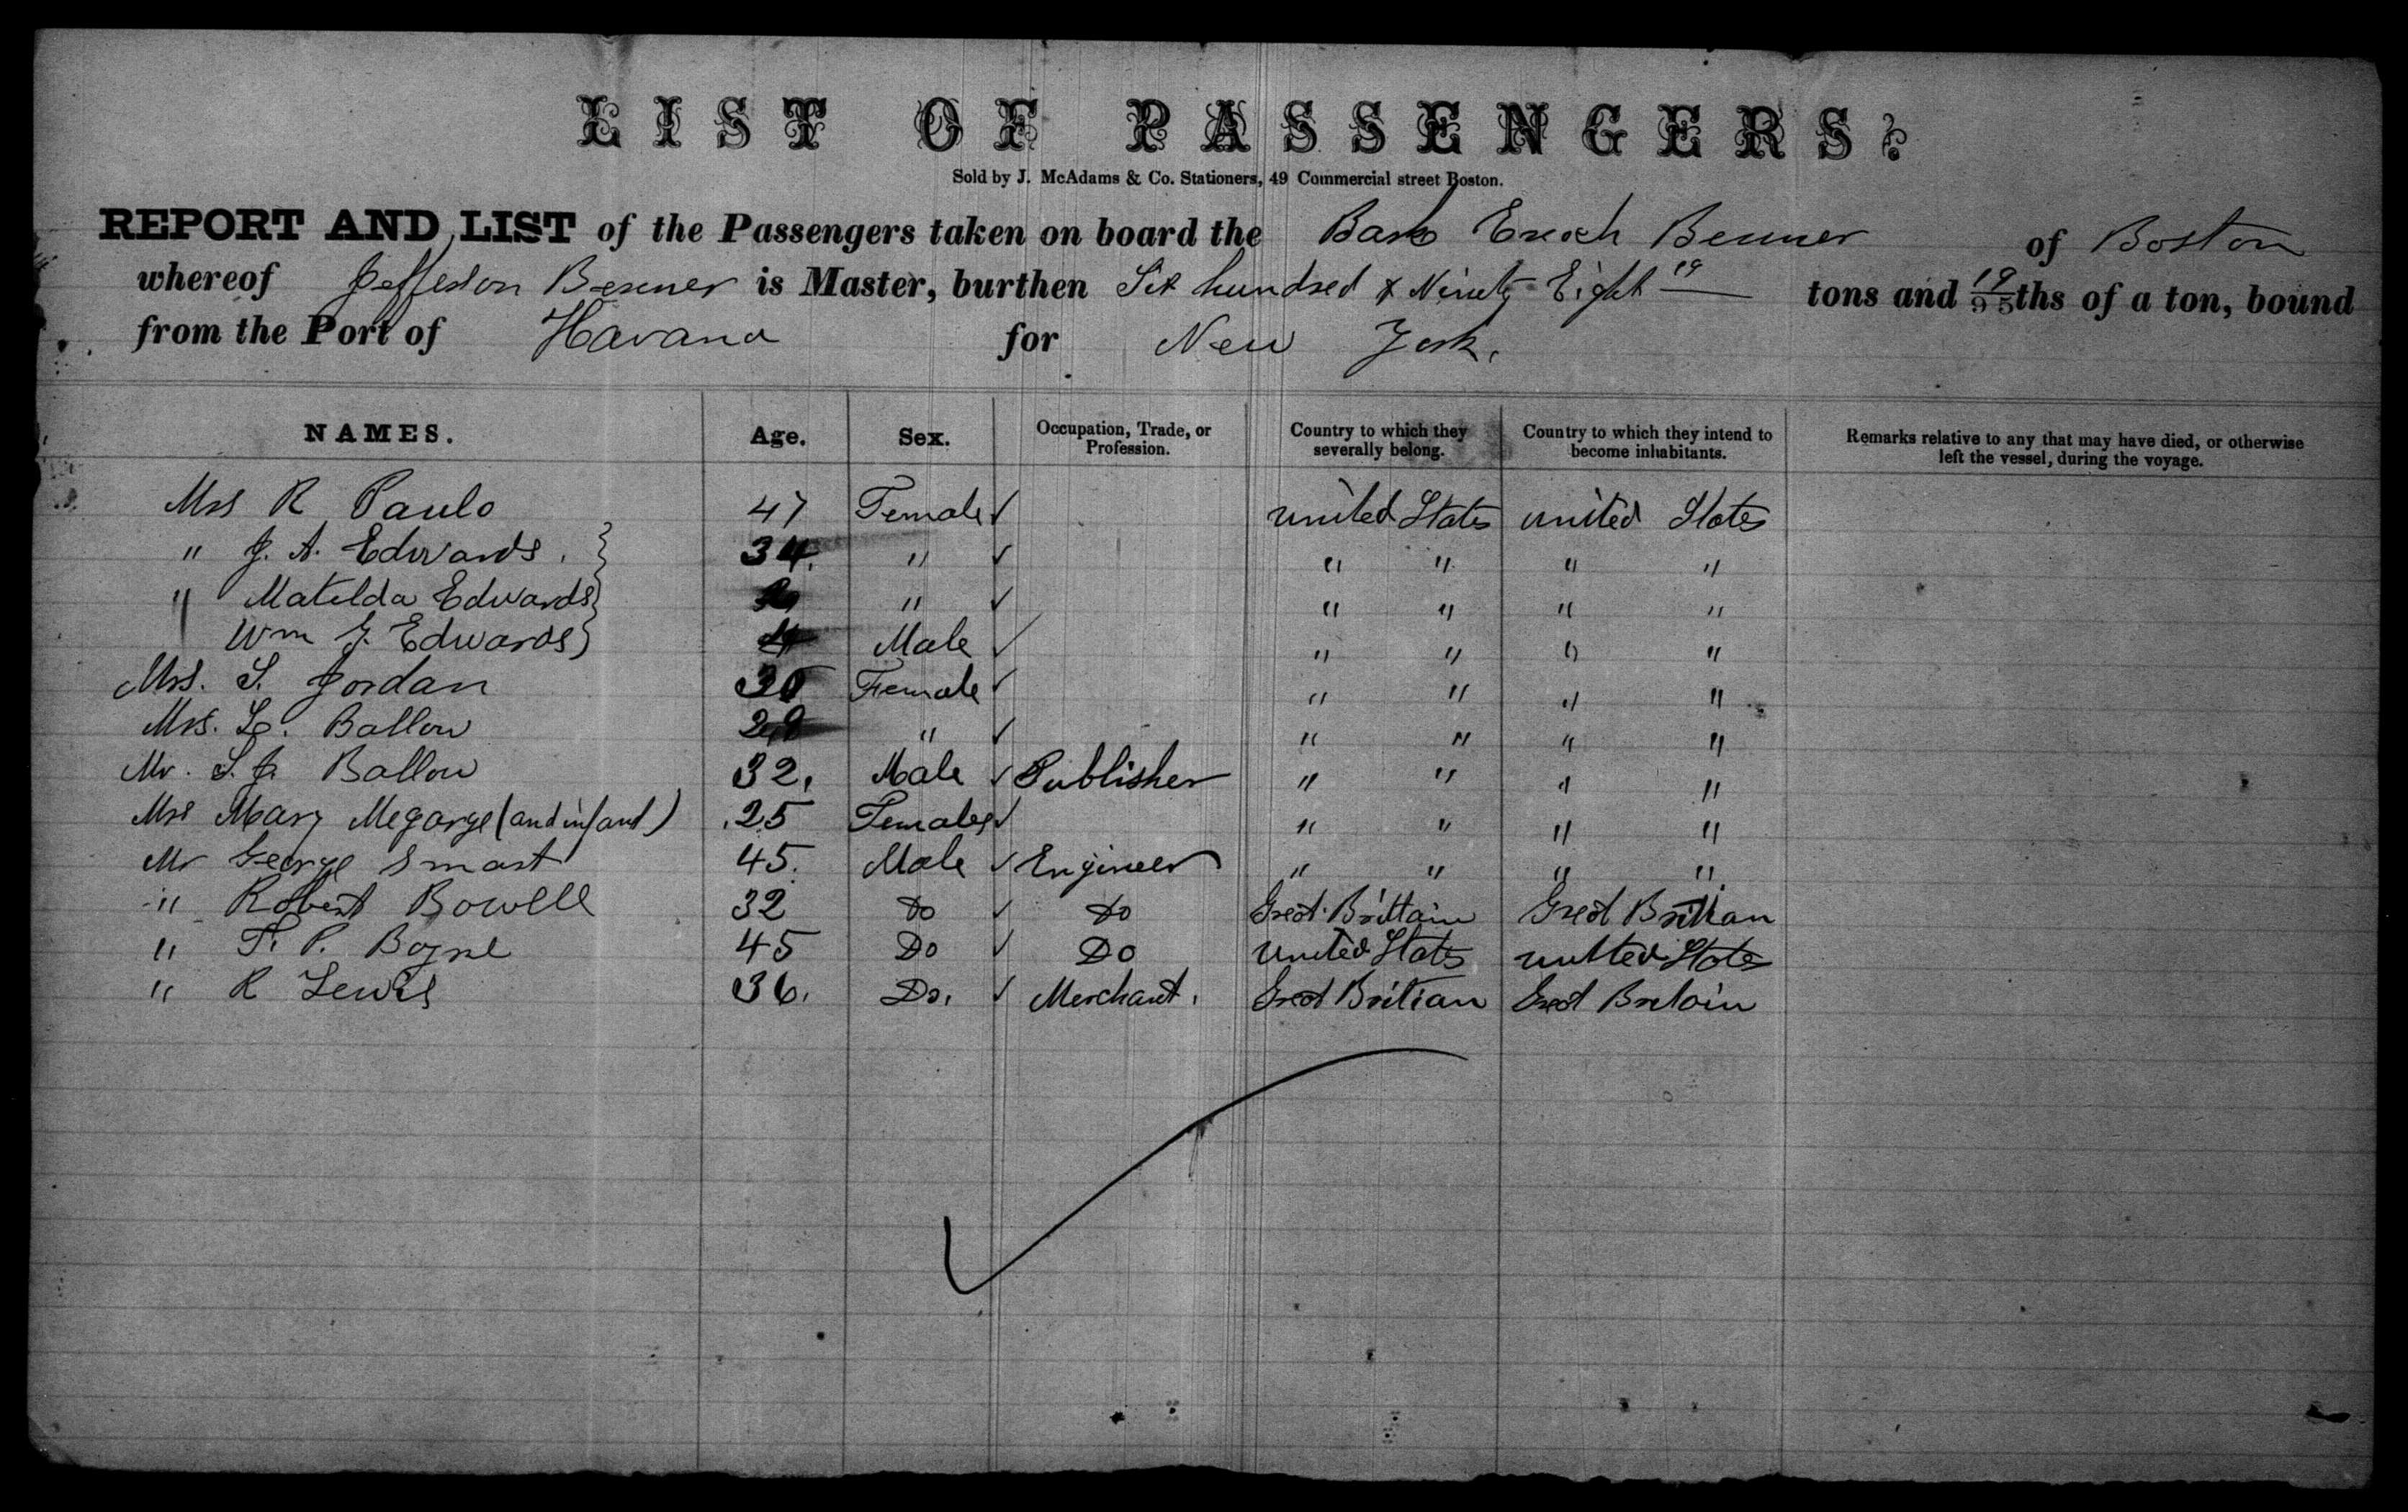 LIST OF PASSENGERS.
Sold by J. McAdams & Co. Stationers, 49 Commercial street Boston.
REPORT AND LIST of the Passengers taken on board the Bark Enoch Benner of Boston
whereof Jefferson Benner is Master, burthen Six hundred & Ninety Eight 19 tons and 19/95ths of a ton, bound
from the Port of Havana for New York.
NAMES. Age. Sex. Occupation, Trade, or Profession. Country to which they severally belong. Country to which they intend to become inhabitants. Remarks relative to any that may have died, or otherwise left the vessel, during the voyage.
Mrs R Paulo 47 Female ✓ United States United States
" J. A. Edwards. } 34. " ✓ " " " "
" Matilda Edwards } " ✓ " " " "
" Wm J. Edwards } Male ✓ " " " "
Mrs. S. Jordan 30 Female ✓ " " " "
Mrs. L. Ballou " ✓ " " " "
Mr. S. J. Ballou 32. Male ✓ Publisher " " " "
Mrs Mary Megarge (and infant) 25 Females ✓ " " " "
Mr George Smart 45. Male ✓ Engineer " " " "
" Robert Bowell 32 Do ✓ Do Great Brittain Great Brittan
" F. P. Boyne 45 Do ✓ Do United States United States
" R Lewis 36. Do. ✓ Merchant. Great Britian Great Britain